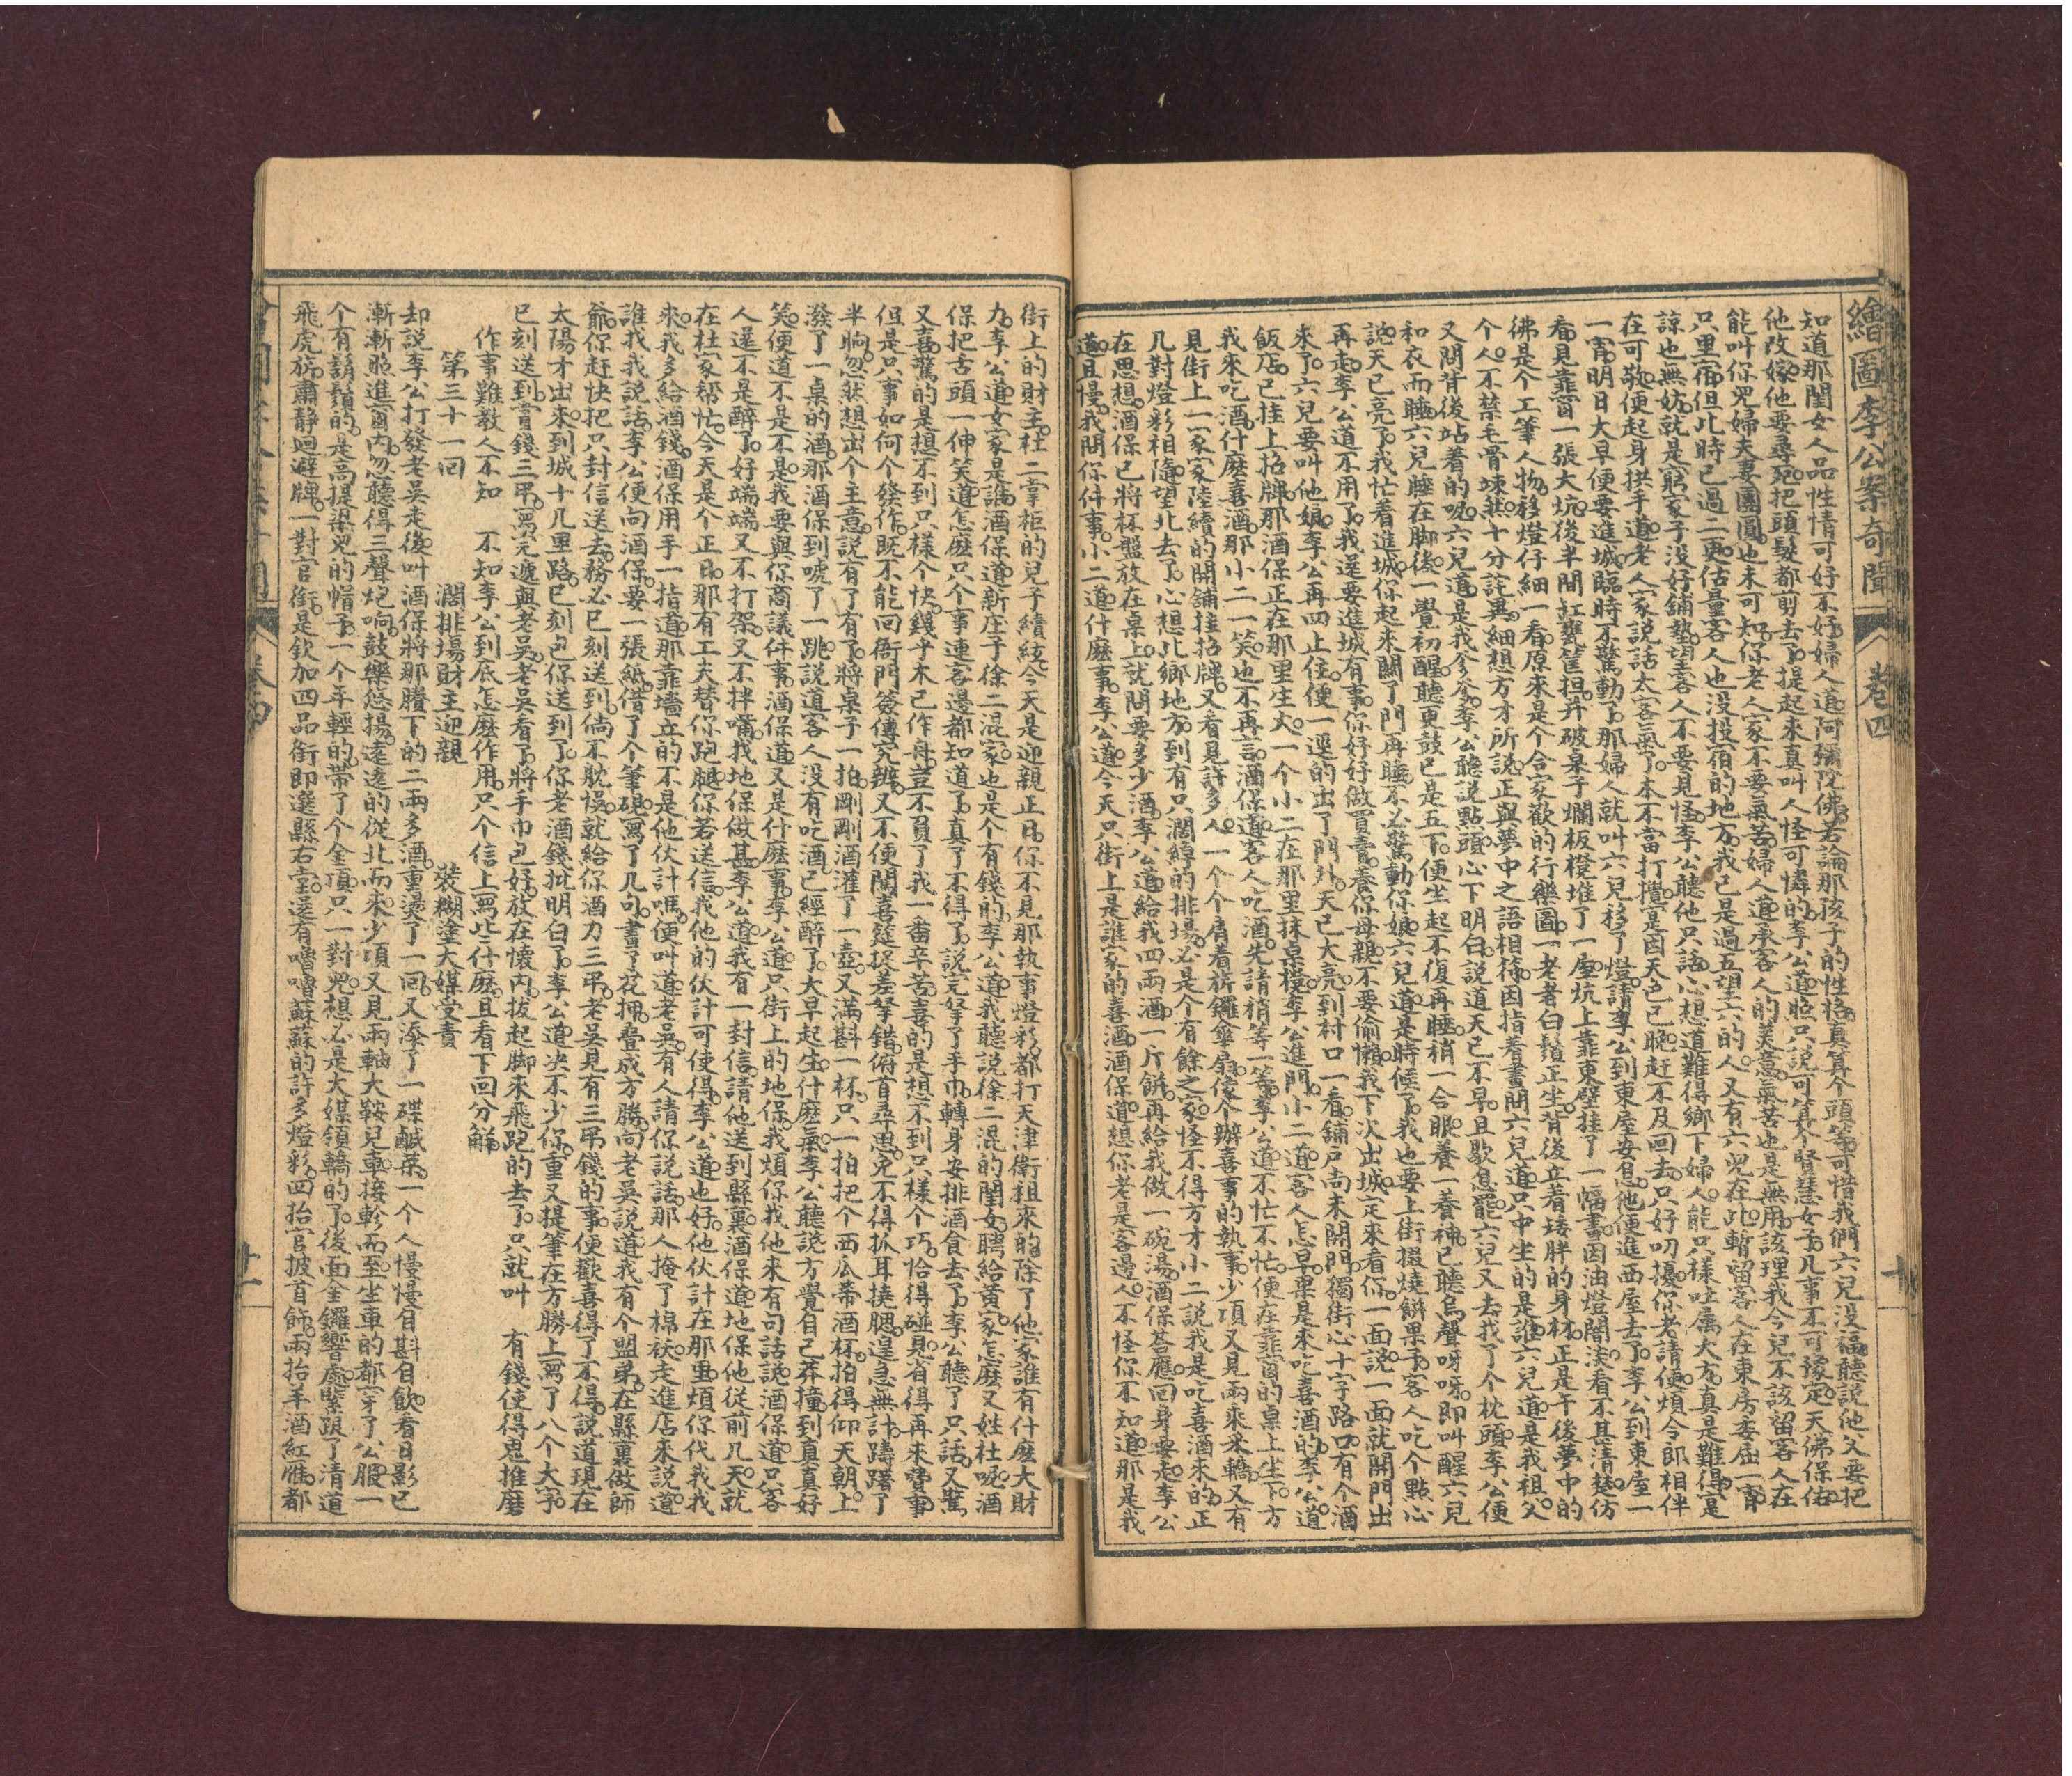 繪圖李公案奇聞 卷四 十
知道那閨女人品性情可好不好婦人道阿彌陀佛若論那孩子的性格真算个頭等可惜我們六兒沒福聽說他父要把
他改嫁他要尋死把頭髮都剪去了提起來真叫人怪可憐的李公道照只說可算个賢慧女子几事不可豫定天佛保佑
能叫你兒婦夫妻團圓也未可知你老人家不要氣苦婦人道承客人的美意氣苦也是無用該理我今兒不該留客人在
只里宿但此時已過二更估量客人也沒投宿的地方我已是過五望六的人又有六兒在此暫留客人在東房委屈一宵
諒也無妨就是窮家子沒好鋪墊望客人不要見怪李公聽他只話心想道難得鄉下婦人能只樣吐屬大方真是難得寔
在可敬便起身拱手道老人家說話太客氣了本不當打攪寔因天色已晚赶不及回去只好叨擾你老請便煩令郎相伴
一宵明日大早便要進城臨時不驚動了那婦人就叫六兒移了燈請李公到東屋安息他便進西屋去了李公到東屋一
看見靠窗一張大坑後半間缸甕筐担并破桌子爛板櫈堆了一屋坑上靠東壁挂了一幅畫因油燈闇淡看不甚清楚仿
佛是个工筆人物移燈仔細一看原來是个合家歡的行樂圖一老者白鬚正坐背後立着矮胖的身材正是午後夢中的
个人不禁毛骨竦然十分詫異細想方才所說正與夢中之語相符因指着畫問六兒道只中坐的是誰六兒道是我祖父
又問背後站着的呢六兒道是我爹爹李公聽說點頭心下明白說道天已不早且歇息罷六兒又去找了个枕頭李公便
和衣而睡六兒睡在脚後一覺初醒聽更鼓已是五下便坐起不復再睡稍一合眼養一養神已聽烏聲呀呀即叫醒六兒
說天已亮了我忙着進城你起來關了門再睡不必驚動你娘六兒道是時候了我也要上街掇燒餅果子客人吃个點心
再走李公道不用了我還要進城有事你好好做買賣養你母親不要偷懶我下次出城定來看你一面說一面就開門出
來了六兒要叫他娘李公再四止住便一逕的出了門外天已大亮到村口一看舖戶尚未開門獨街心十字路口有个酒
飯店已挂上招牌那酒保正在那里生火一个小二在那里抹桌櫈李公進門小二道客人怎早票是來吃喜酒的李公道
我來吃酒什麽喜酒那小二一笑也不再言酒保道客人吃酒先請稍等一等李公道不忙不忙便在靠窗的桌上坐下方
見街上一家家陸續的開舖挂招牌又看見許多人一个个肩着旂鑼傘扇傢个辦喜事的執事少項又見兩乘采轎又有
几對燈彩相隨望北去了心想此鄉地方到有只濶綽的排場必是个有餘之家怪不得方才小二說我是吃喜酒來的正
在思想酒保已將杯盤放在桌上就問要多少酒李公道給我四兩酒一斤餅再給我做一碗湯酒保荅應回身要走李公
道且慢我問你件事小二道什麽事李公道今天只街上是誰家的喜酒酒保道想你老是客邊人不怪你不知道那是我
街上的財主杜二掌柜的兒子續絃今天是迎親正日你不見那執事燈彩都打天津衛租來的除了他家誰有什麽大財
九李公道女家是誰酒保道新庄子徐二混家也是个有錢的李公道我聽說徐二混的閨女聘給黄家怎麽又姓杜呢酒
保把舌頭一伸笑道怎麽只个事連客邊都知道了真了不得了說完拏了手巾轉身安排酒食去了李公聽了只話又驚
又喜驚的是想不到只樣个快幾乎木已作舟豈不負了我一畨辛苦喜的是想不到只樣个巧恰得碰見省得再來費事
但是只事如何个發作既不能回衙門簽傳究辦又不便鬧喜筵捉差拏錯俯首尋思免不得抓耳撓腮遑急無計躊躇了
半晌忽然想出个主意說有了有了將桌子一拍剛剛酒灌了一壺又滿斟一杯只一拍把个西瓜蒂酒杯拍得仰天朝上
潑了一桌的酒那酒保到唬了一跳說道客人沒有吃酒已經醉了大早起生什麽氣李公聽說方覺自己莽撞到真真好
笑便道不是不是我要與你商議件事酒保道又是什麽事李公道只街上的地保我煩你找他來有句話說酒保道只客
人遝不是醉了好端端又不打架又不拌嘴找地保做甚李公道我有一封信請他送到縣裏酒保道地保他從前几天就
在杜家帮忙今天是个正日那有工夫替你跑腿你若送信我他的伙計可使得李公道也好他伙計在那里煩你代我找
來我多給酒錢酒保用手一指道那靠墻立的不是他伙計嗎便叫道老吳有人請你說話那人掩了棉袄走進店來說道
誰我我說話李公便向酒保要一張紙借了个筆硯寫了几句畫了花押疊成方勝向老吳說道我有个盟弟在縣裏做師
爺你赶快把只封信送去務必已刻送到倘不躭悞就給你酒力三吊老吳見有三吊錢的事便歡喜得了不得說道現在
太陽才出來到城十几里路已刻包你送到了你老酒錢批明白了李公道决不少你重又提筆在方勝上寫了八个大字
已刻送到賣錢三吊寫完遞與老吳老吳看了將手巾已好放在懷內拔起脚來飛跑的去了只就叫 有錢使得鬼推磨
作事難教人不知 不知李公到底怎麽作用只个信上寫些什麽且看下回分解
第三十一回 濶排場財主迎親 裝糊塗大媒受責
却說李公打發老吳走後叫酒保將那賸下的二兩多酒重燙了一回又添了一碟鹹菜一个人慢慢自斟自飲看日影已
漸漸照進窗內忽聽得三聲炮响鼓樂悠揚遠遠的從北而來少項又見兩軸大鞍兒車接軫而至坐車的都穿了公服一
个有鬍鬚的是高提梁兒的帽子一个年輕的帶了个金頂只一對兒想必是大媒領轎的了後面金鑼響處緊跟了清道
飛虎旂肅静迴避牌一對官銜是欽加四品銜即選縣右堂還有嚕嚕蘇蘇的許多燈彩四抬官披首飾兩抬羊酒紅雁都